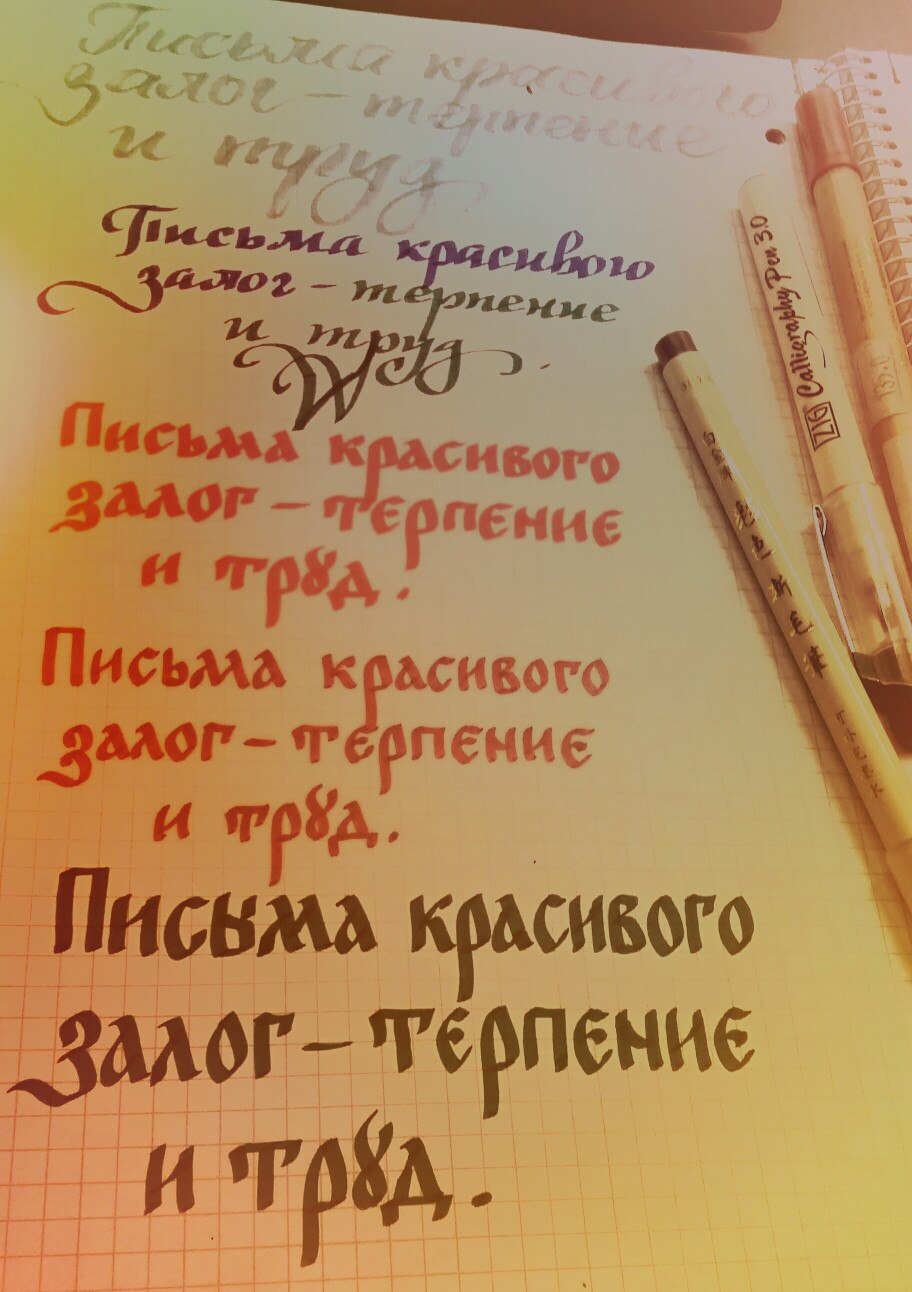 Письма красивого
залог – терпение
и труд
Письма красивого
залог – терпение
и труд.
Письма красивого
залог – терпение
и труд.
Письма красивого
залог – терпение
и труд.
Письма красивого
залог – терпение
и труд.
ZIG Calligraphy Pen 3.0